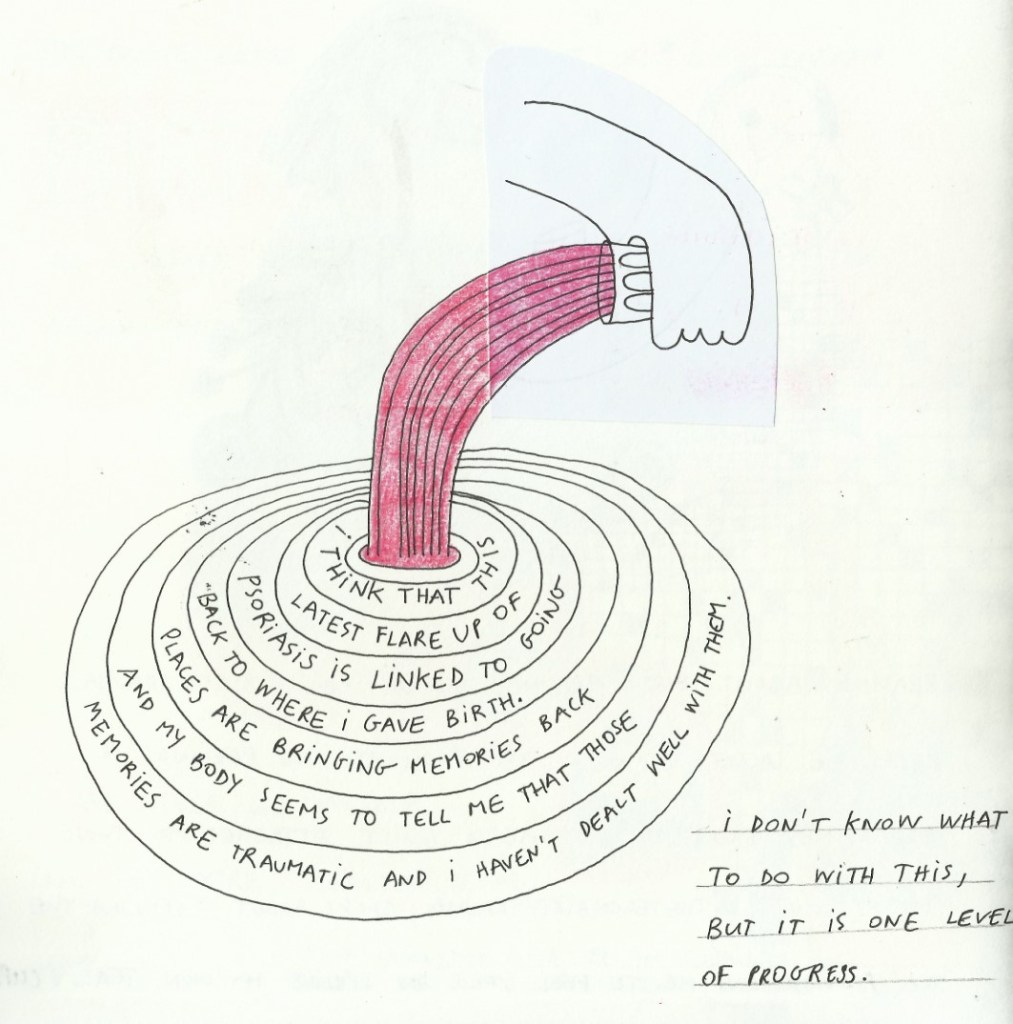 i THINK THAT THIS
LATEST FLARE UP OF
PSORIASIS IS LINKED TO GOING
"BACK TO WHERE i GAVE BIRTH.
PLACES ARE BRINGING MEMORIES BACK
AND MY BODY SEEMS TO TELL ME THAT THOSE
MEMORIES ARE TRAUMATIC AND i HAVEN'T DEALT WELL WITH THEM.
i DON'T KNOW WHAT
TO DO WITH THIS,
BUT iT iS ONE LEVEL
OF PROGRESS.